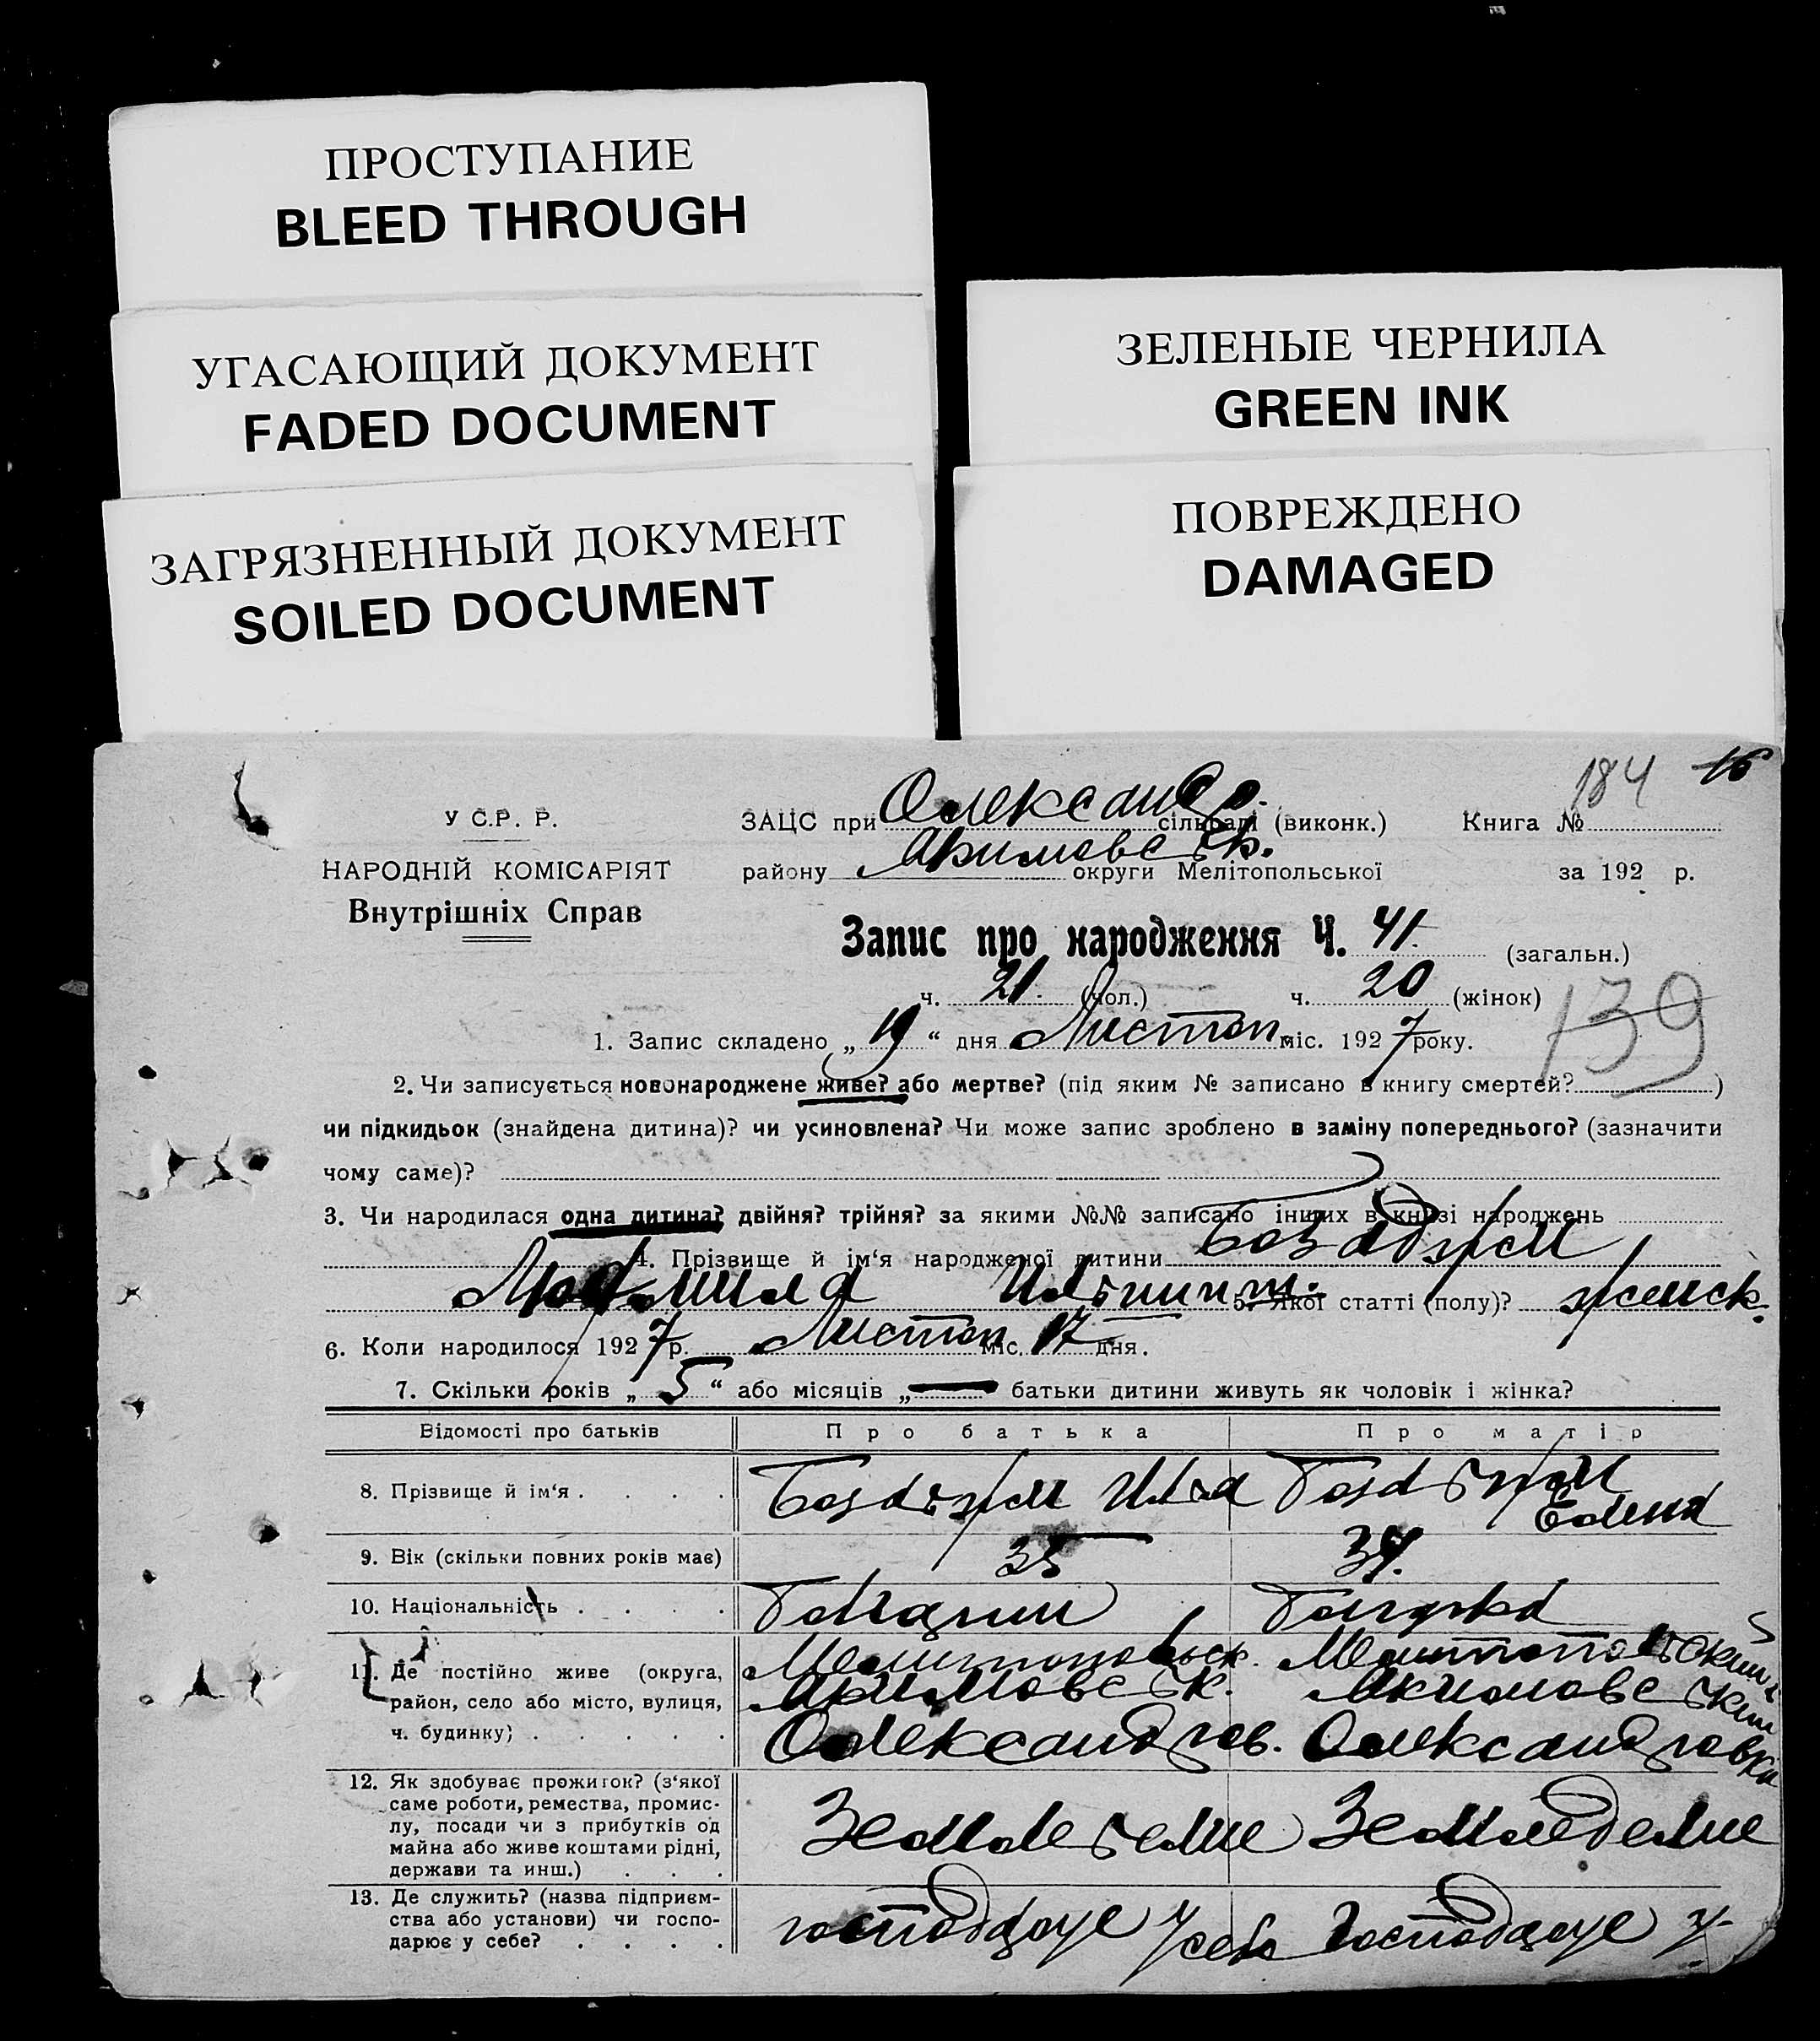 ПРОСТУПАНИЕ
BLEED THROUGH
УГАСАЮЩИЙ ДОКУМЕНТ
FADED DOCUMENT
ЗАГРЯЗНЕННЫЙ ДОКУМЕНТ
SOILED DOCUMENT
ЗЕЛЕНЫЕ ЧЕРНИЛА
GREEN INK
ПОВРЕЖДЕНО
DAMAGED
184 16
У С.Р. Р.
ЗАЦС при Олександр. сільраді (виконк.) Книга №
НАРОДНІЙ КОМІСАРІЯТ
району Акимовськ. округи Мелітопольської за 192 р.
Внутрішніх Справ
Запис про народження Ч. 41. (загальн.)
ч. 21. (чол.) ч. 20 (жінок)
139
1. Запис складено „ 19 “ дня Листоп. міс. 1927 року.
2. Чи записується новонароджене живе? або мертве? (під яким № записано в книгу смертей? )
чи підкидьок (знайдена дитина)? чи усиновлена? Чи може запис зроблено в заміну попереднього? (зазначити
чому саме)?
3. Чи народилася одна дитина? двійня? трійня? за якими №№ записано інших в книзі народжень
4. Прізвище й ім‘я народженої дитини
Людмила 5. Якої статті (полу)? женск.
6. Коли народилося 1927 р. Листоп міс. 17 дня.
7. Скільки років „ 5 “ або місяців „ — батьки дитини живуть як чоловік і жінка?
Відомості про батьків Про батька Про матір
8. Прізвище й ім‘я . . . . Илья
Елена
9. Вік (скільки повних років має) 35 34.
10. Національність . . . .
11. Де постійно живе (округа, Мелитопольск. Мелитопольский
район, село або місто, вулиця, Акимовськ. Акимовський
ч. будинку) . . . . . Олександров. Олександровка
12. Як здобуває прожиток? (з‘якої
саме роботи, ремества, промис-
лу, посади чи з прибутків од
майна або живе коштами рідні,
держави та инш.) . . . Земледелие Земледелие
13. Де служить? (назва підприєм-
ства або установи) чи госпо-
дарює у себе? . . . . господарує у себе господарує у